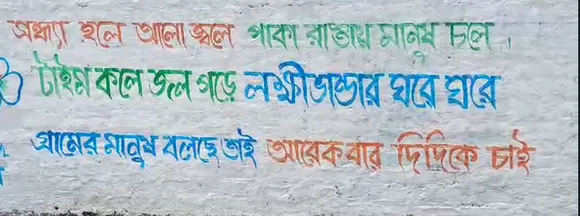 সন্ধ্যা হলে আলো জ্বলে পাকা রাস্তায় মানুষ চলে ।
টাইম কলে জল পড়ে লক্ষীভান্ডার ঘরে ঘরে
গ্রামের মানুষ বলছে তাই আরেকবার দিদিকে চাই